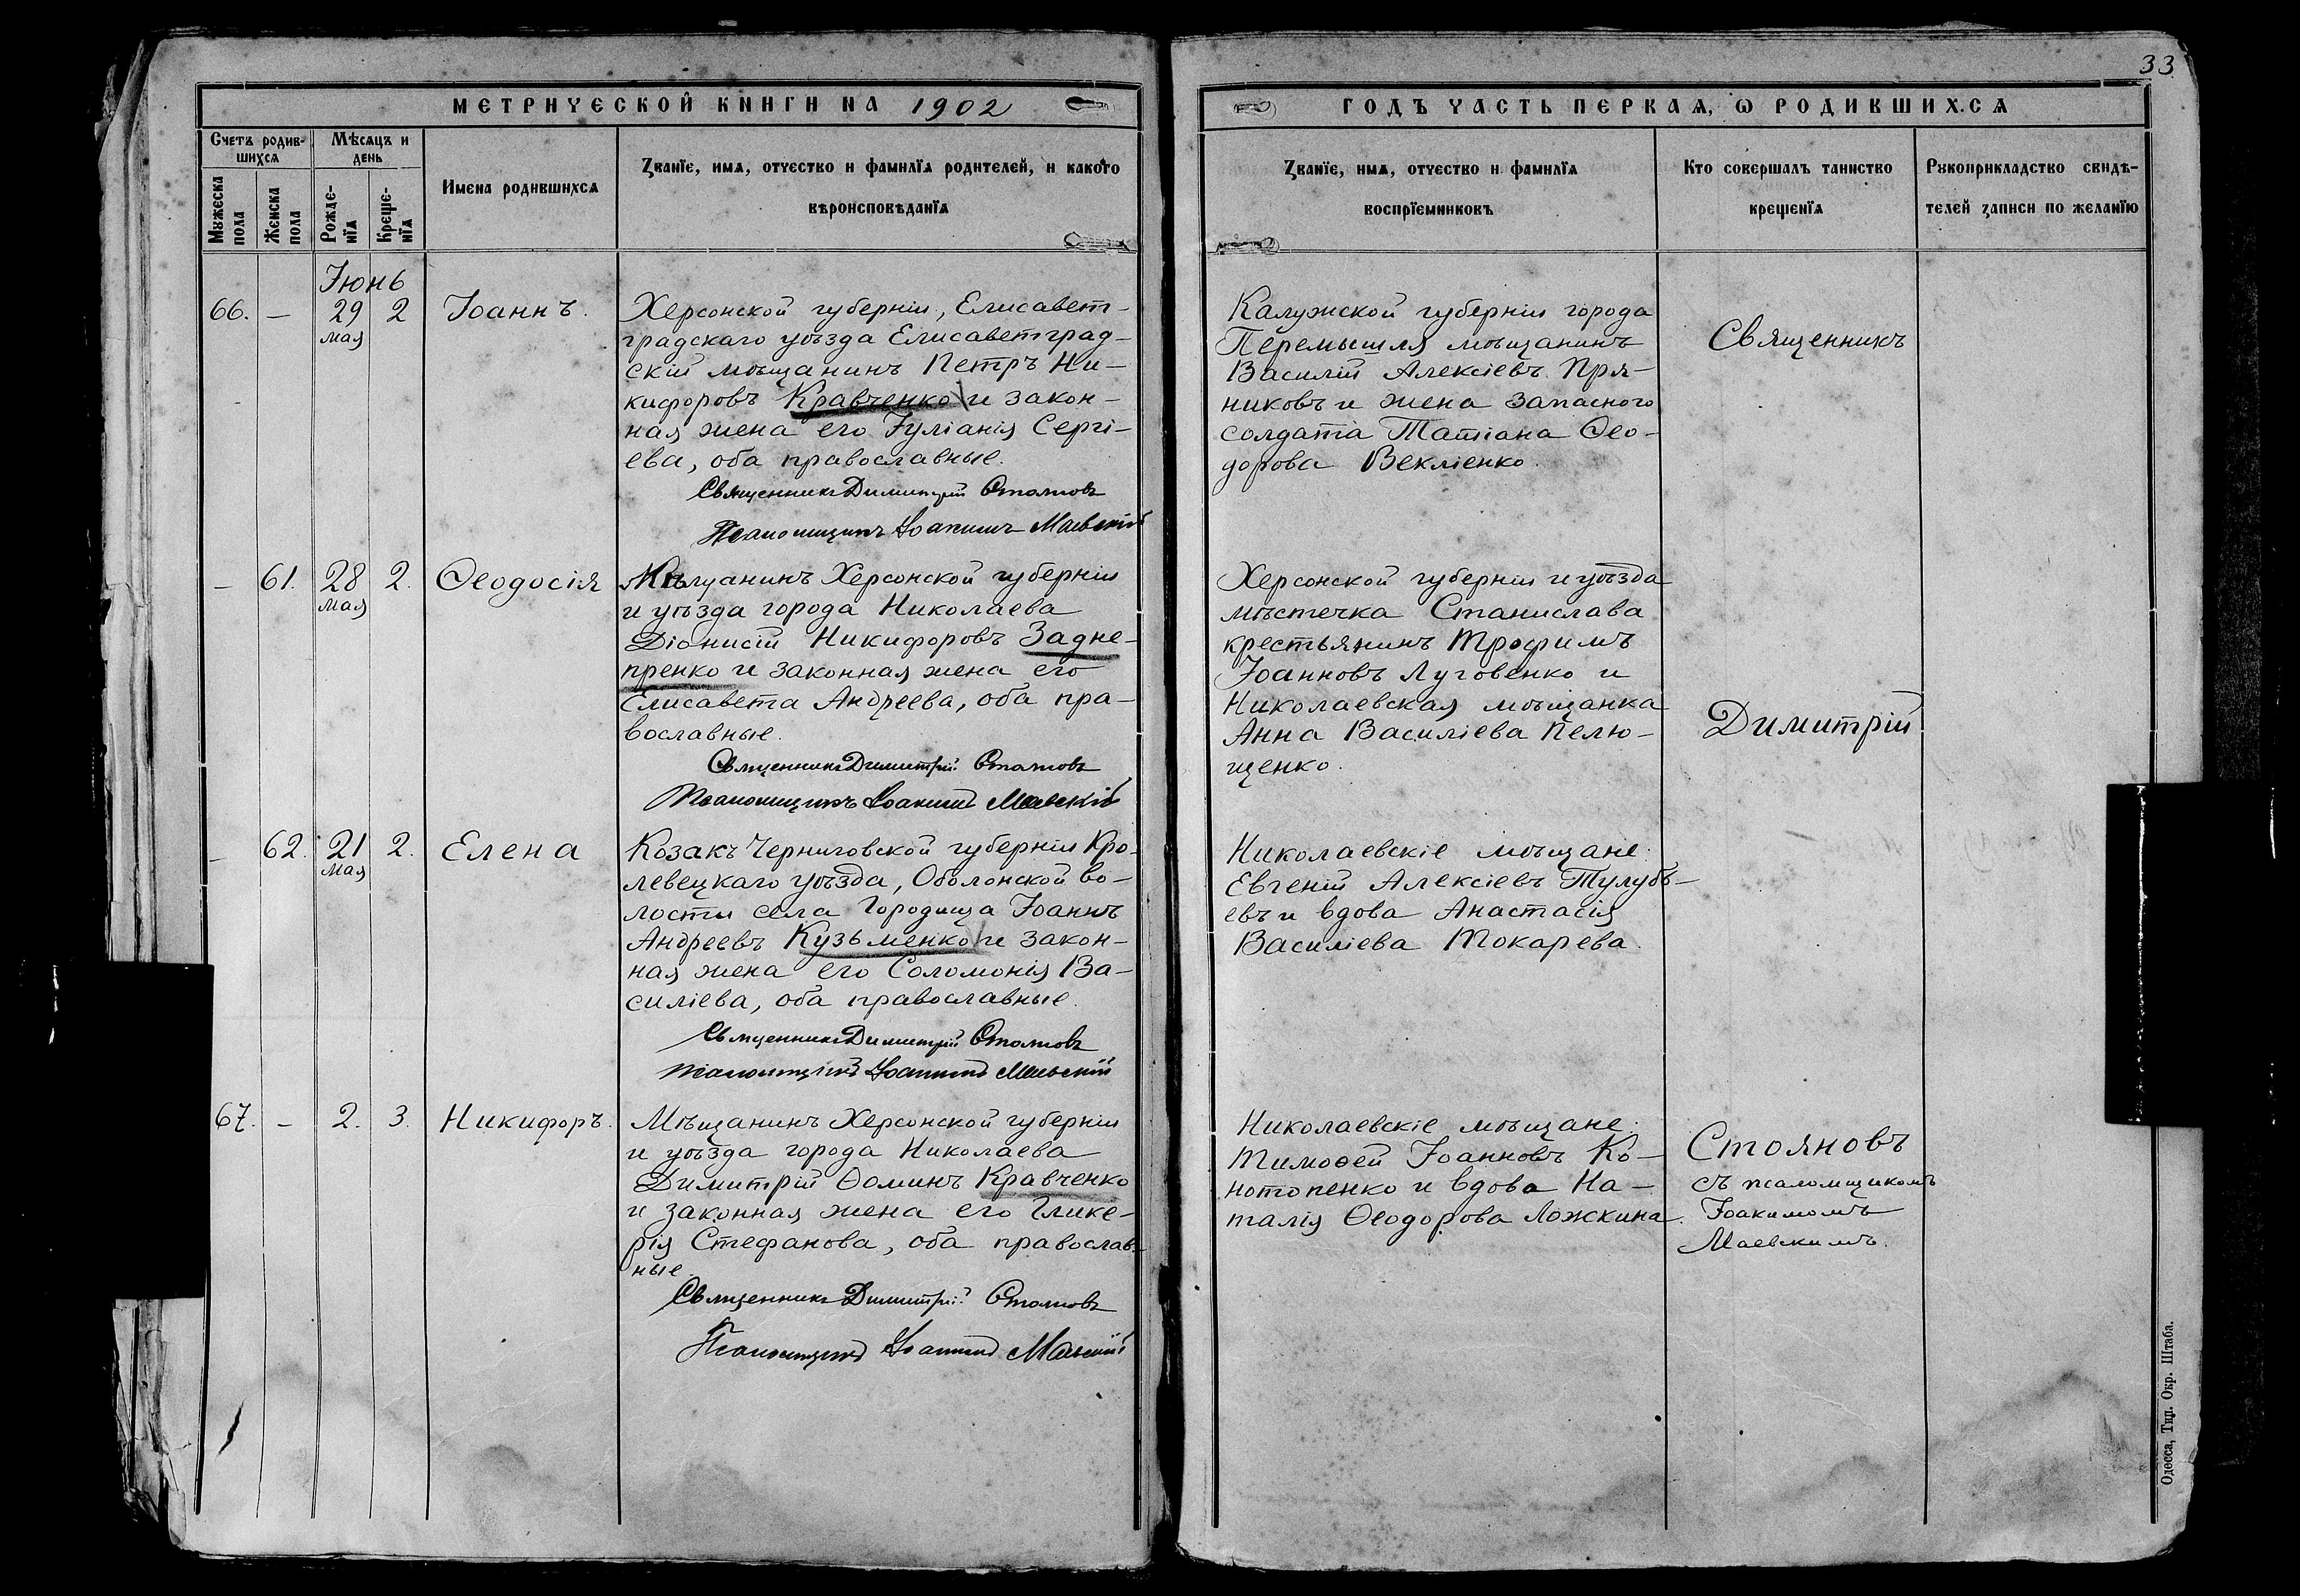 33
МЕТРИЧЕСКОЙ КНИГИ НА 1902
ГОДЪ ЧАСТЬ ПЕРВАЯ, Ѡ РОДИВШИХСЯ
Счетъ родив-
шихся
Мѣсяцъ и
день
Мужеска
пола
Женска
пола
Рожде-
нїя
Креще-
нїя
Имена родившихся
Званїе, имя, отчество и фамилїя родителей, и какого
вѣроисповѣданїя
Званїе, имя, отчество и фамилїя
воспрїемниковъ
Кто совершалъ таинство
крещенїя
Рукоприкладство свидѣ-
телей записи по желанїю
Іюнь
66. – 29 2 Іоаннъ.
мая
Херсонской губерніи, Елисавет-
градскаго уѣзда Елисаветград-
скій мѣщанинъ Петръ Ни-
кифоровъ Кравченко и закон-
ная жена его Іуліанія Сергі-
ева, оба православные.
Священникъ Димитрій Стояновъ
Псаломщикъ Іоакимъ Маевскій
Калужской губерніи города
Перемышля мѣщанинъ
Василій Алексіевъ Пря-
никовъ и жена запасного
солдата Татіана Ѳео-
дорова Векліенко.
– 61. 28 2. Ѳеодосія
мая
Мѣщанинъ Херсонской губерніи
и уѣзда города Николаева
Діонисій Никифоровъ Задне-
пренко и законная жена его
Елисавета Андреева, оба пра-
вославные.
Священникъ Димитрій Стояновъ
Псаломщикъ Іоакимъ Маевскій
Херсонской губерніи и уѣзда
мѣстечка Станислава
крестьянинъ Трофимъ
Іоанновъ Луговенко и
Николаевская мѣщанка
Анна Василіева Пелю-
щенко.
– 62. 21 2. Елена
мая
Козакъ Черниговской губерніи Кро-
левецкаго уѣзда, Оболонской во-
лости села Городища Іоаннъ
Андреевъ Кузьменко и закон-
ная жена его Соломонія Ва-
силіева, оба православные.
Священникъ Димитрій Стояновъ
Псаломщикъ Іоакимъ Маевскій
Николаевскіе мѣщане:
Евгеній Алексіевъ Тулубь-
евъ и вдова Анастасія
Василіева Токарева.
67. – 2. 3. Никифоръ.
Мѣщанинъ Херсонской губерніи
и уѣзда города Николаева
Димитрій Ѳоминъ Кравченко
и законная жена его Глике-
рія Стефанова, оба православ-
ные
Священникъ Димитрій Стояновъ
Псаломщикъ Іоакимъ Маевскій
Николаевскіе мѣщане:
Тимоѳей Іоанновъ Ко-
нотопенко и вдова На-
талія Ѳеодорова Ложкина.
Священникъ
Димитрій
Стояновъ
съ псаломщикомъ
Іоакимомъ
Маевскимъ.
Одесса, Тип. Окр. Штаба.